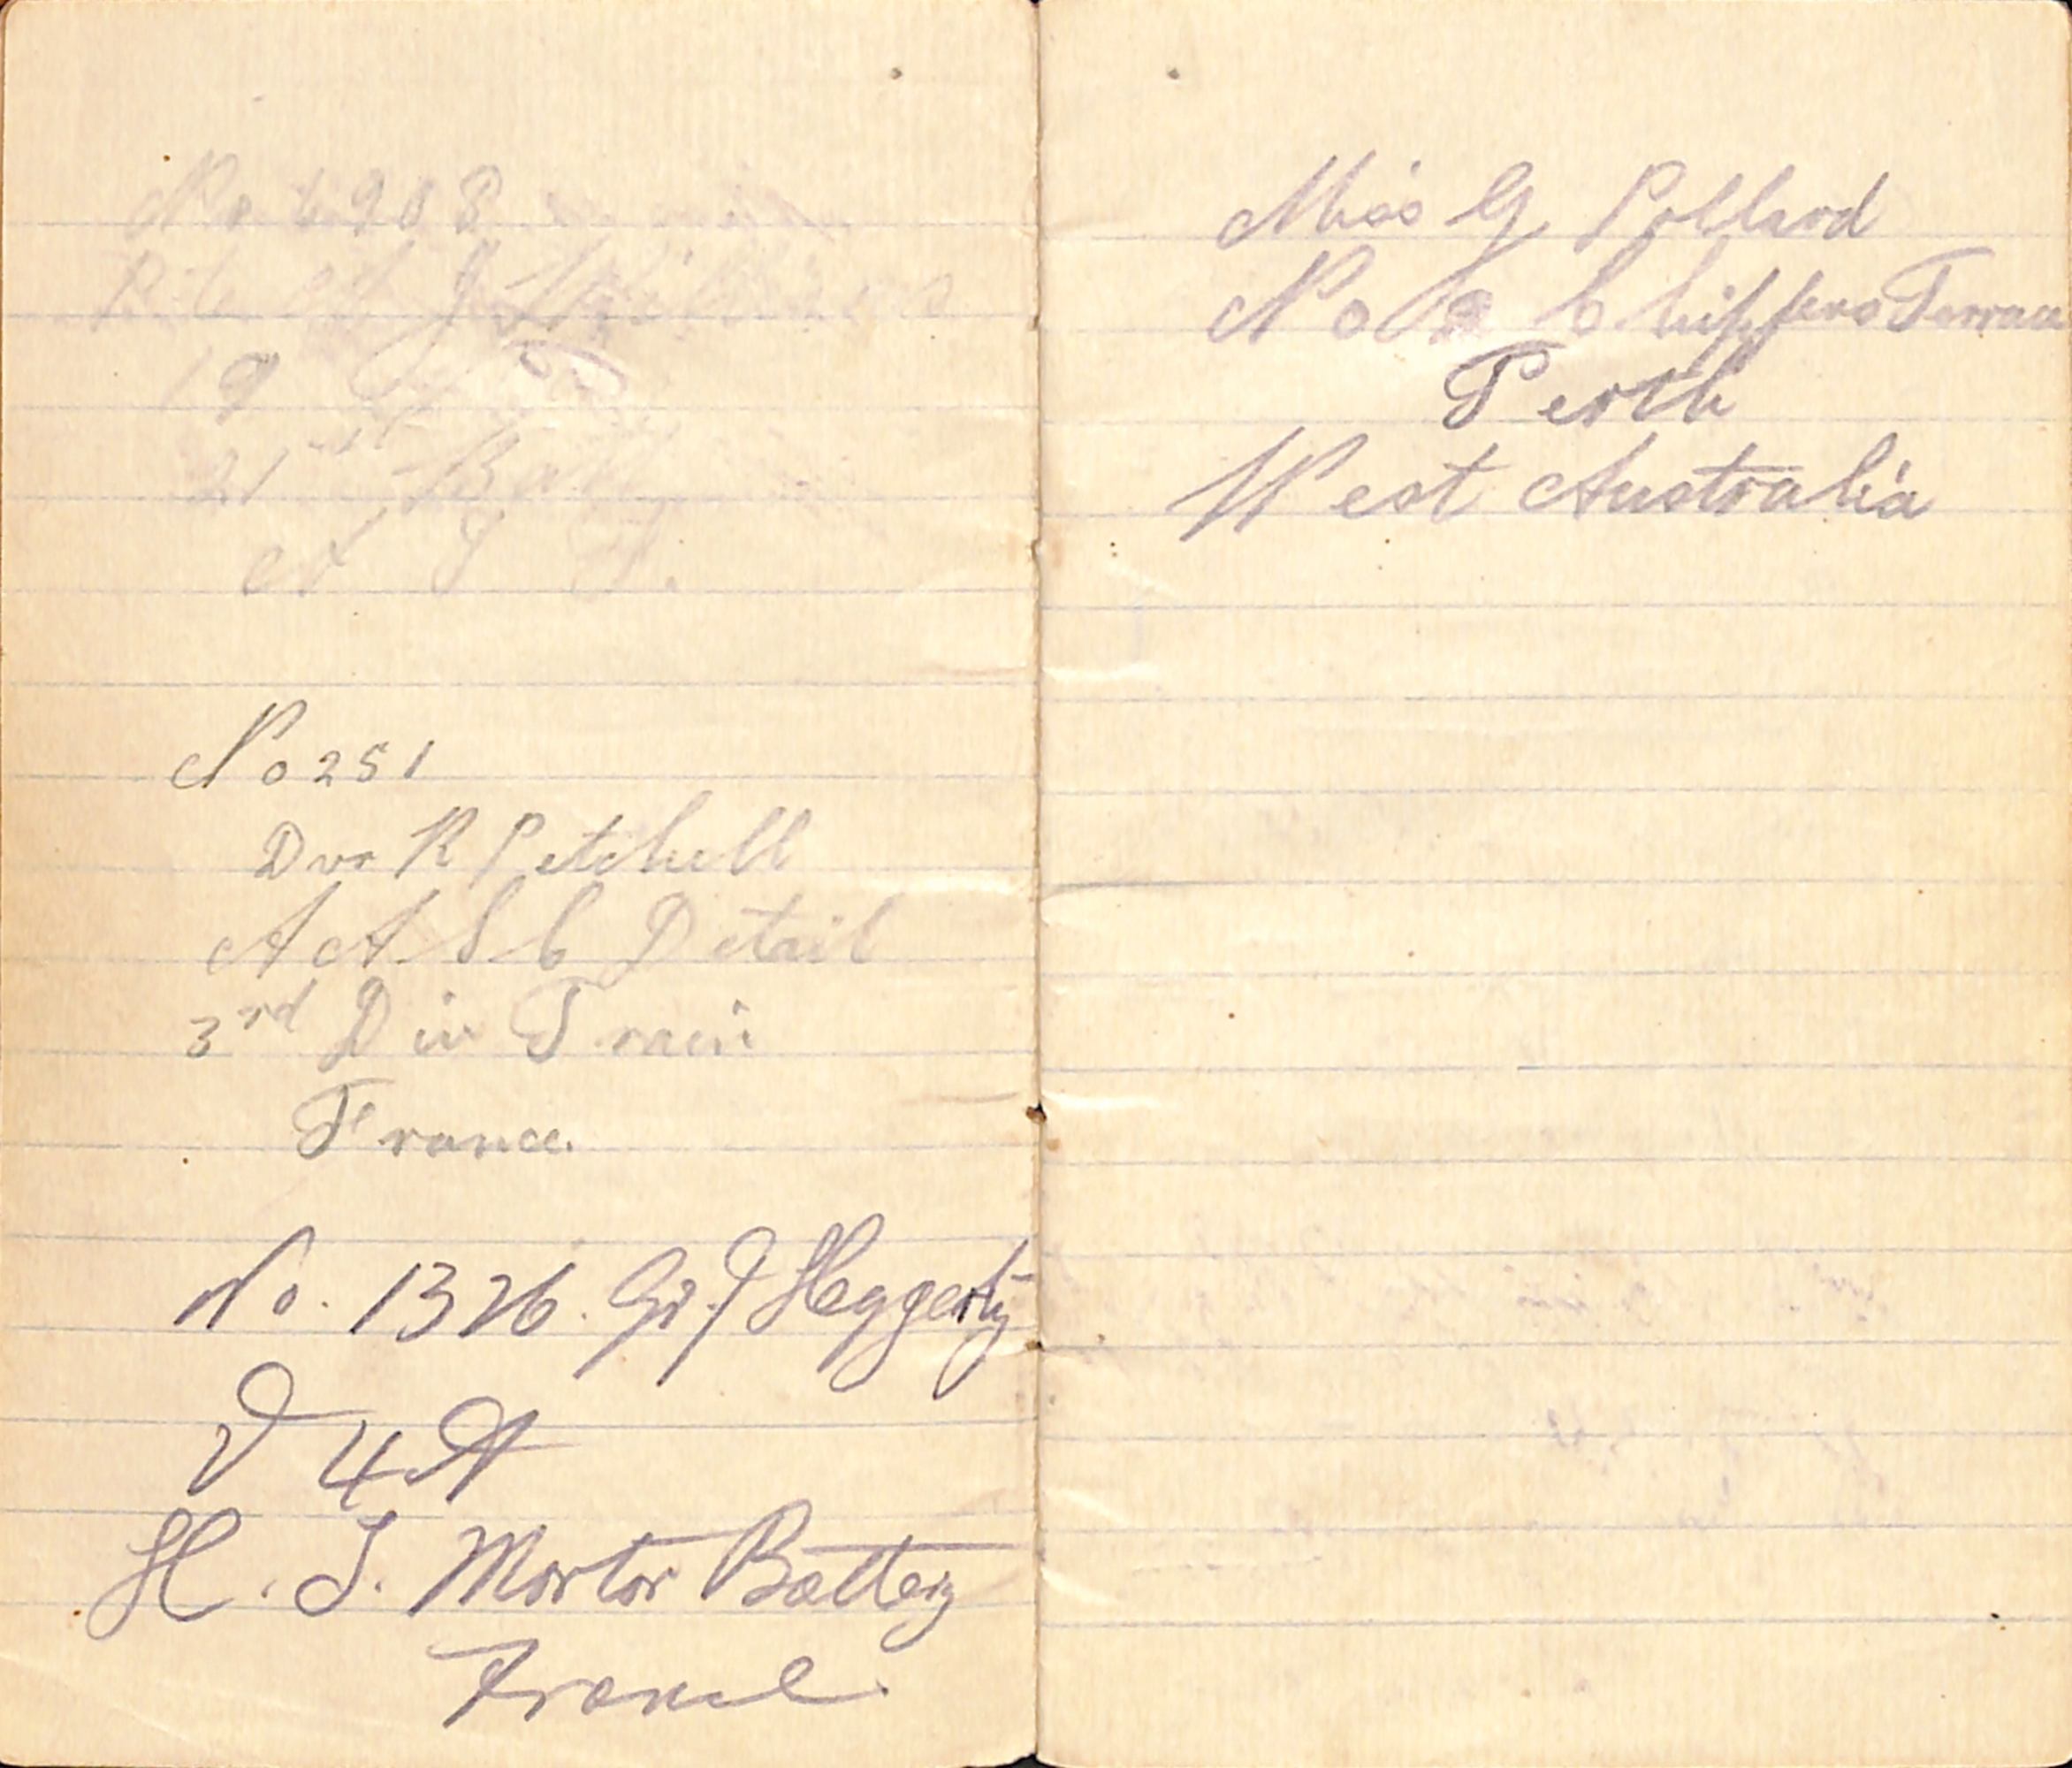 No 4908
19
21st Batt
A I F.
No 251
Dvr R Petchell
A A S C Detail
3rd Div Train
France.
No. 1326. Gr. J Heggerty
V 4 A
H. T. Mortor Battery
France.
Miss G Pollard
No Chippers Terrace
Perth
West Australia